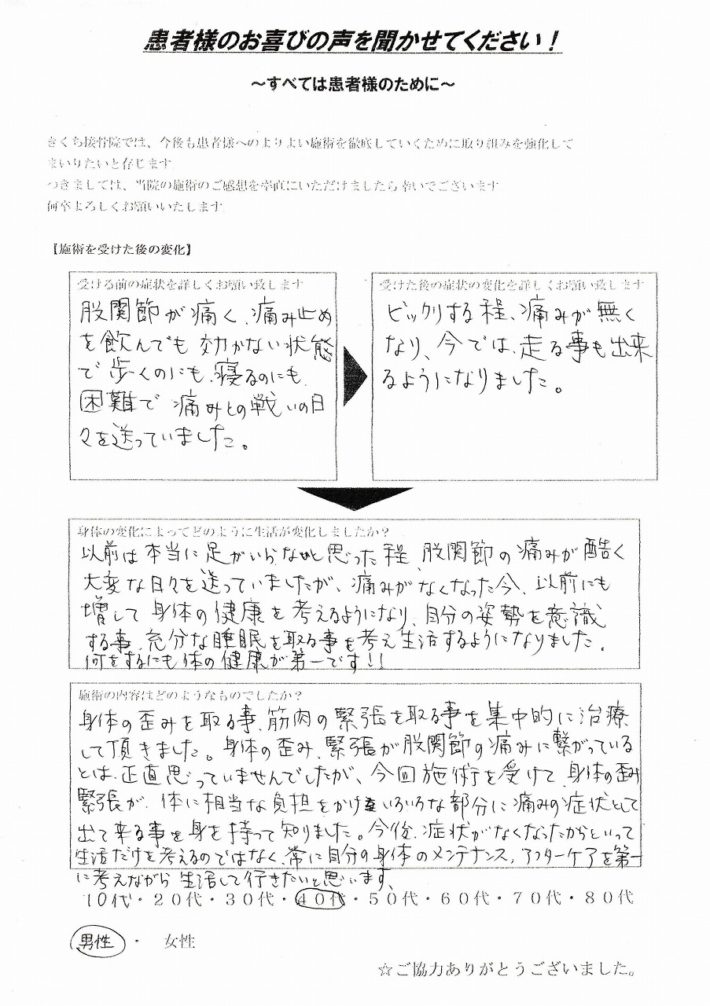 患者様のお喜びの声を聞かせてください！
～すべては患者様のために～
きくち接骨院では、今後も患者様へのよりよい施術を徹底していくために取り組みを強化して
まいりたいと存じます
つきましては、当院の施術のご感想を率直にいただけましたら幸いでございます
何卒よろしくお願いいたします
【施術を受けた後の変化】
受ける前の症状を詳しくお願い致します
股関節が痛く、痛み止め
を飲んでも効かない状態
で歩くのにも、寝るのにも、
困難で痛みとの戦いの日
々を送っていました。
受けた後の症状の変化を詳しくお願い致します
ビックリする程、痛みが無く
なり、今では、走る事も出来
るようになりました。
身体の変化によってどのように生活が変化しましたか？
以前は本当に足がいらないと思った程、股関節の痛みが酷く
大変な日々を送っていましたが、痛みがなくなった今、以前にも
増して身体の健康を考えるようになり、自分の姿勢を意識
する事、充分な睡眠を取る事を考え生活するようになりました。
何をするにも体の健康が第一です!!
施術の内容はどのようなものでしたか？
身体の歪みを取る事、筋肉の緊張を取る事を集中的に治療
して頂きました。身体の歪み、緊張が股関節の痛みに繋がっている
とは、正直思っていませんでしたが、今回施術を受けて、身体の歪み
緊張が、体に相当な負担をかけ、いろいろな部分に痛みの症状として
出て来る事を身を持って知りました。今後、症状がなくなったからといって
生活だけを考えるのではなく、常に自分の身体のメンテナンス、アフターケアを第一
に考えながら生活して行きたいと思います、
10代・20代・30代・40代・50代・60代・70代・80代
男性 ・ 女性
☆ご協力ありがとうございました。